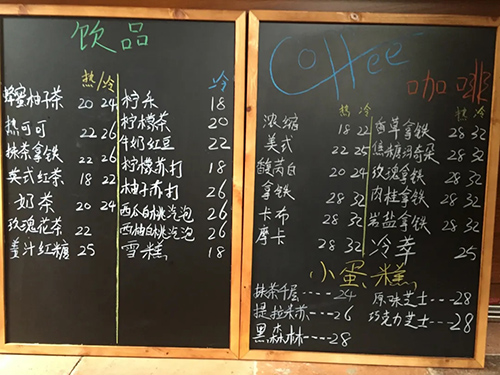 饮品
热 冷
蜂蜜柚子茶 20 24
热可可 22 26
抹茶拿铁 22 26
英式红茶 18 22
奶茶 20 24
玫瑰花茶 22
姜汁红糖 25
冷
柠乐 18
柠檬茶 20
牛奶红豆 22
柠檬苏打 26
柚子苏打 26
西瓜白桃汽泡 26
西柚白桃汽泡 26
雪糕 18
Coffee
咖啡
热 冷
浓缩 18 22
美式 22 25
馥芮白 20 24
拿铁 28 32
卡布 28 32
摩卡 28 32
热 冷
香草拿铁 28 32
焦糖玛奇朵 28 32
玫瑰拿铁 28 32
肉桂拿铁 28 32
岩盐拿铁 28 32
冷萃 25
小蛋糕
抹茶千层----24
提拉米苏---26
黑森林---28
原味芝士---28
巧克力芝士---28